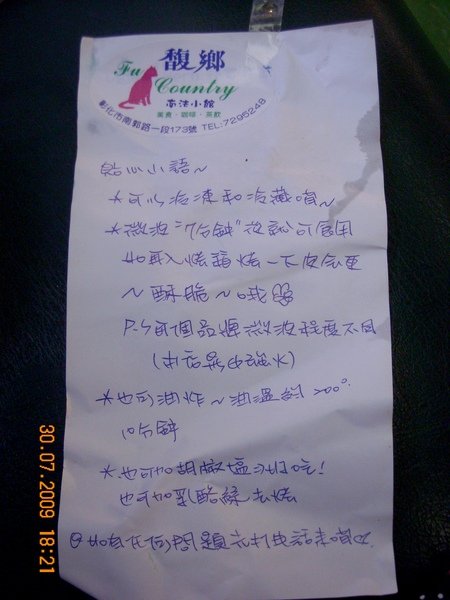 馥鄉
Fu Country
南法小館
美食‧咖啡‧茶飲
彰化市南郭路一段173號 TEL:7295248
貼心小語~
*可以冷凍和冷藏唷~
*微波"7分鐘"後就可食用
如再入烤箱烤一下皮會更
~酥脆~哦
P.S每個品牌微波程度不同
*也可油炸~油溫約200°
10分鐘
*也可加胡椒鹽沾著吃!
也可加乳酪絲去烤
如有任何問題 打電話來唷
30.07.2009 18:21